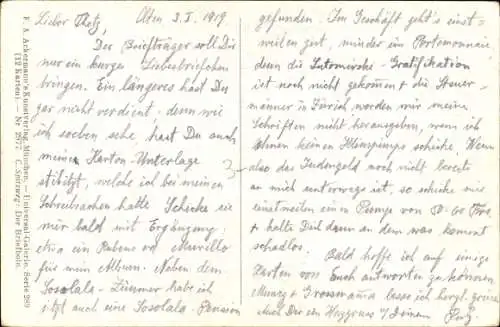 F. A. Ackermann's Kunstverlag, München. — Universal-Galerie. Serie 289
(12 Karten). — Nr. 2977 C. Spitzweg: Der Briefbote.
Lieber Olten, 3. I. 1919.
Der Briefträger soll Dir
nur ein kurzes Liebesbriefchen
bringen. Ein längeres hast Du
gar nicht verdient, denn wie
ich soeben sehe hast Du auch
meine Karton-Unterlage
stibitzt, welche ich bei meinen
Schreibsachen hatte. Schicke sie
mir bald mit Ergänzung,
etwa ein Rubens od. Murillo
für mein Album. Neben dem
Sosolala-Zimmer habe ich
jetzt auch eine Sosolala-Pension
gefunden. Im Geschäft geht's einst-
weilen gut, minder im Portemonnaie
denn die Gratifikation
ist noch nicht gekommen & die Steuer-
männer in Zürich werden mir meine
Schriften nicht herausgeben, wenn ich
ihnen keinen schicke. Wenn
also das Judengeld noch nicht bereits
an mich unterwegs ist, so schicke mir
einstweilen ein Pump von 50-60 Frs
& halte Dich dann an dem was kommt
schadlos.
Bald hoffe ich auf einige
Karten von Euch antworten zu können.
& Grossmama lasse ich herzl. grüssen
Dir Deinem